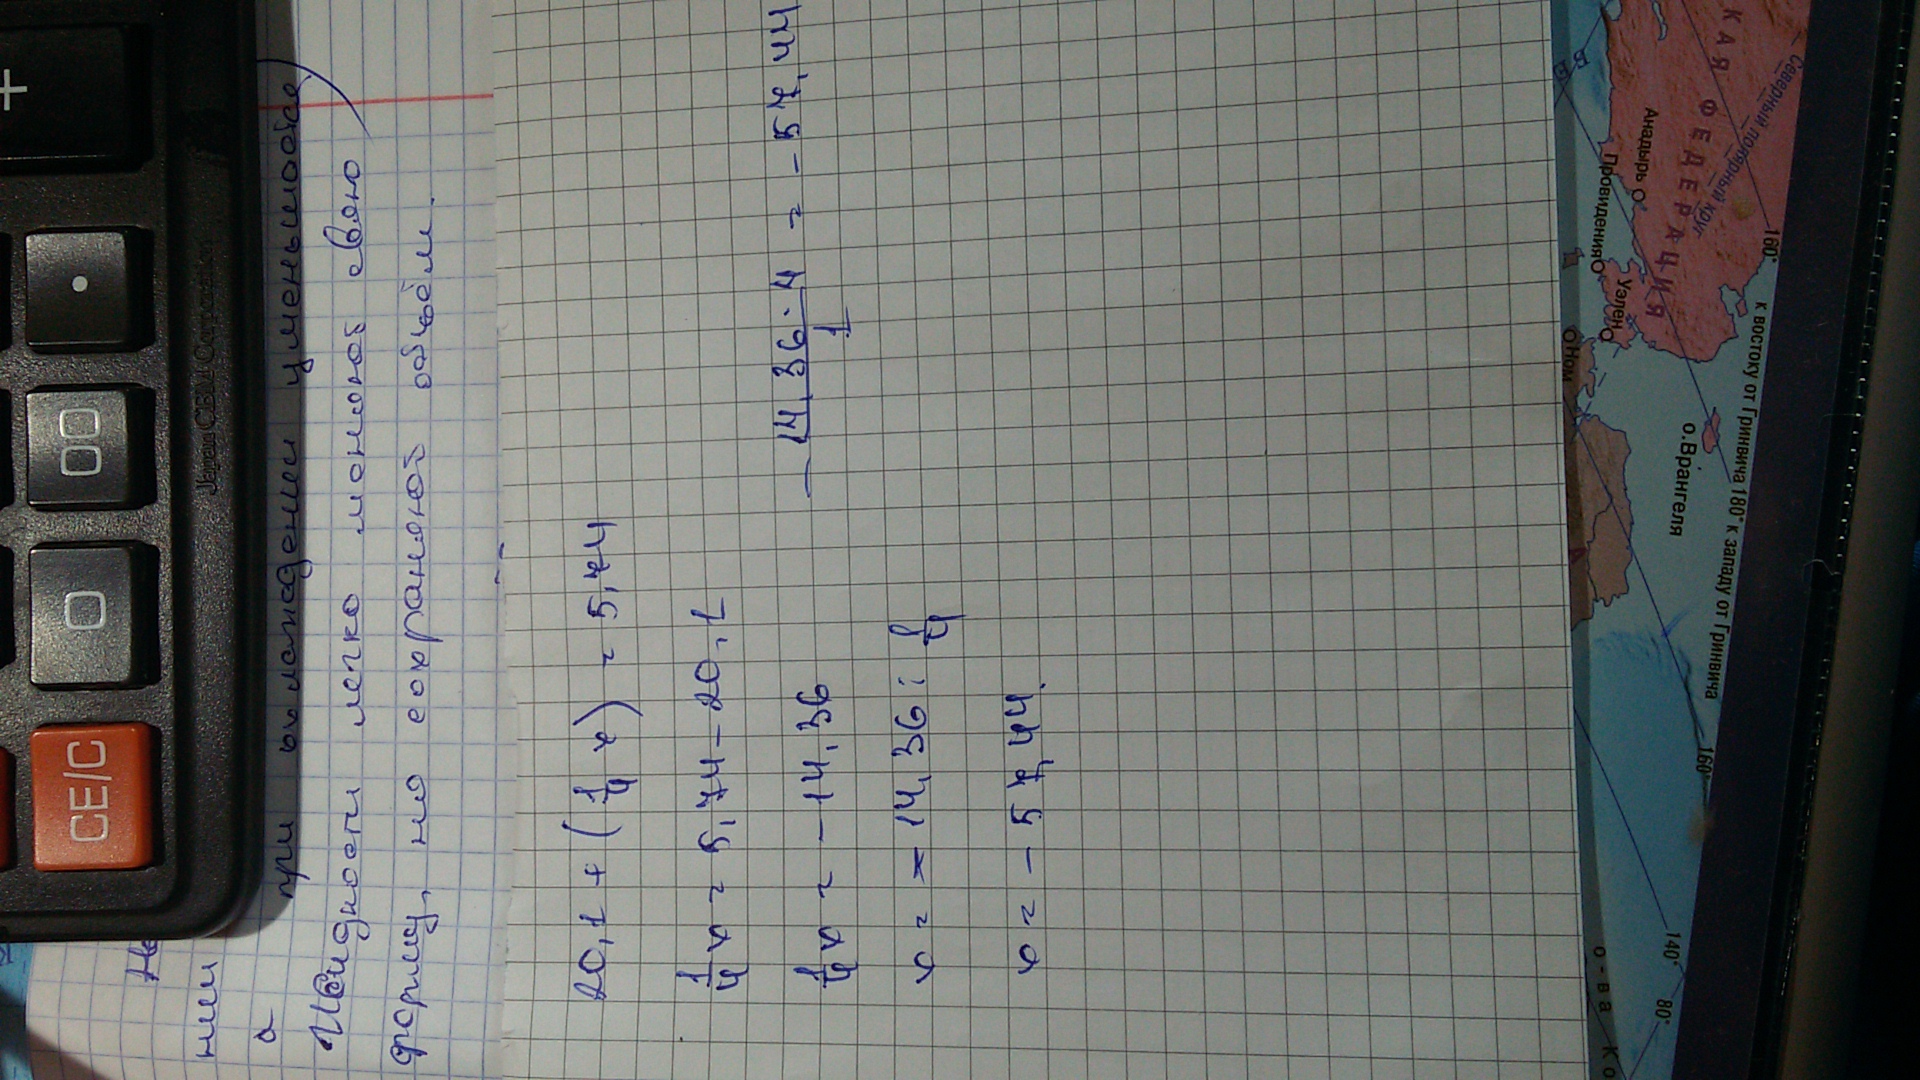 +
.
00
0
CE/C
Не
нии
при охлаждении уменьшается)
а
Жидности легко меняют свою
форму, но сохраняют объём.
20,1 + (1/4 x) = 5,74
1/4 x = 5,74 - 20,1
1/4 x = - 14,36
x = - 14,36 : 1/4
x = - 57,44.
- 14,36 · 4 / 1 = - 57,44
КАЯ ФЕДЕРАЦИЯ
Северный полярный круг
Анадырь
Провидения
Уэлен
Ном
о.Врангеля
160°
к востоку от Гринвича 180° к западу от Гринвича
160°
140°
80°
о-ва Ко